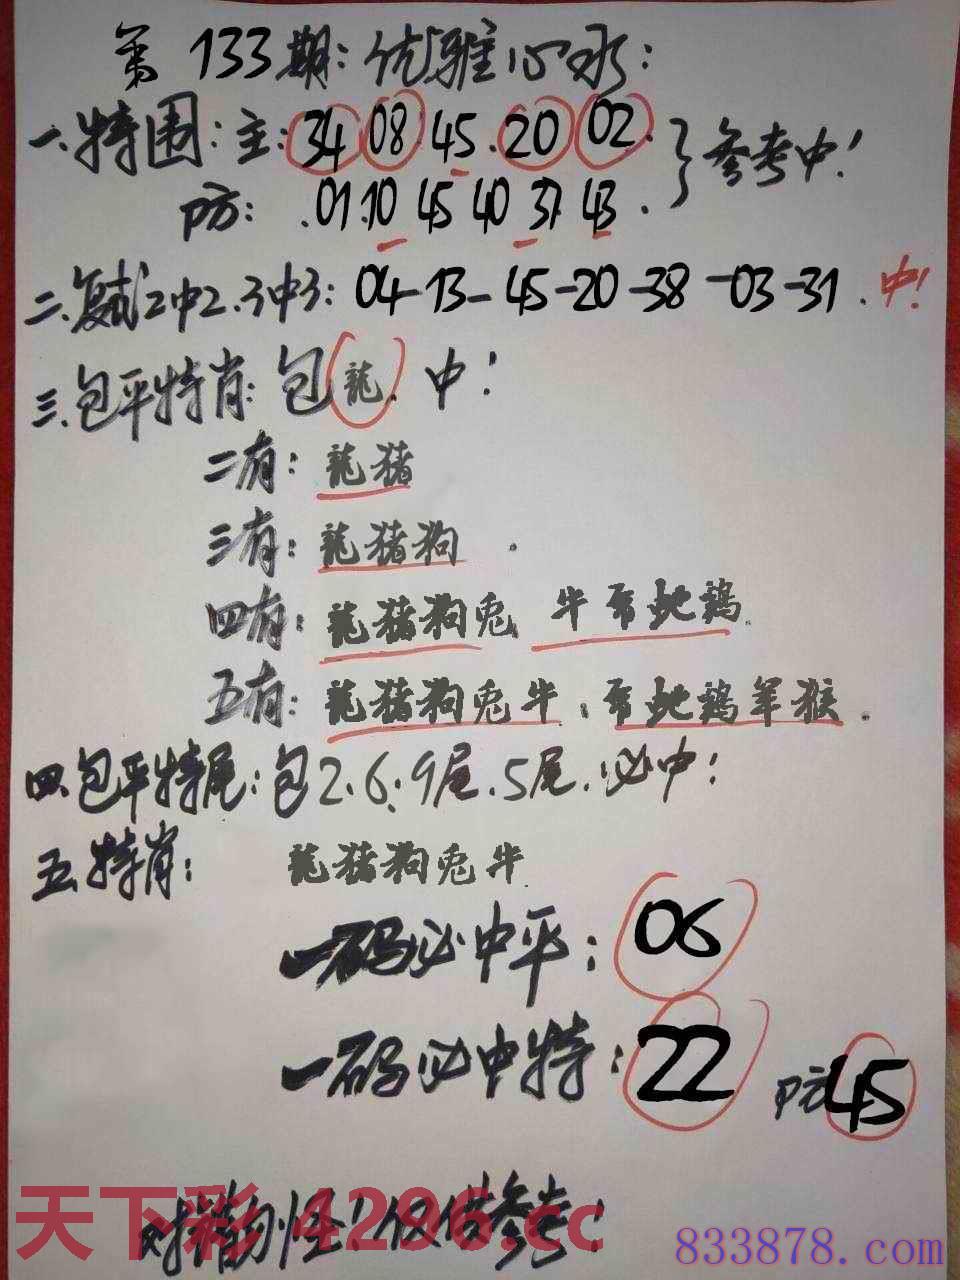 第133期：优雅心水：
一.特围：主：34 08 45.20 02.
防：.01.10 45 40 37 43.
}参考中！
二.复式2中2.3中3：04-13-45-20-38-03-31.中！
三.包平特肖：包龍.中！
二有：龍猪
三有：龍猪狗.
四有：龍猪狗兎 牛 蛇鷄.
五有：龍猪狗兎牛. 蛇鷄羊猴.
四.包平特尾：包2.6.9尾.5尾.必中！
五.特肖：龍猪狗兎牛.
一码必中平：06
一码必中特：22 防45
天下彩 4296.cc
错勿怪！仅供参考！
833878.com